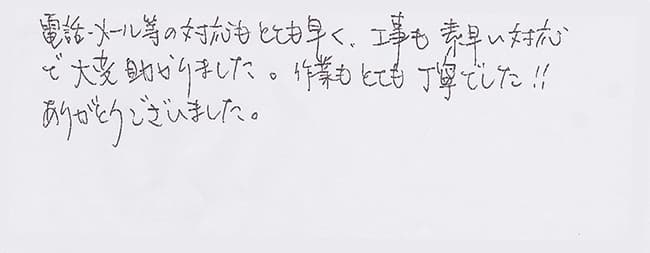 電話・メール等の対応もとても早く、工事も素早い対応
で大変助かりました。作業もとても丁寧でした!!
ありがとうございました。